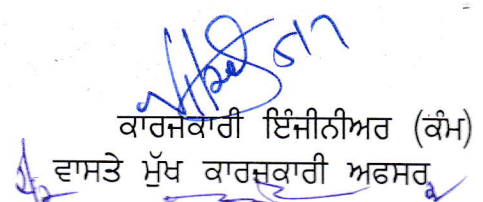 ਕਾਰਜਕਾਰੀ ਇੰਜੀਨੀਅਰ (ਕੰਮ)
ਵਾਸਤੇ ਮੁੱਖ ਕਾਰਜਕਾਰੀ ਅਫਸਰ